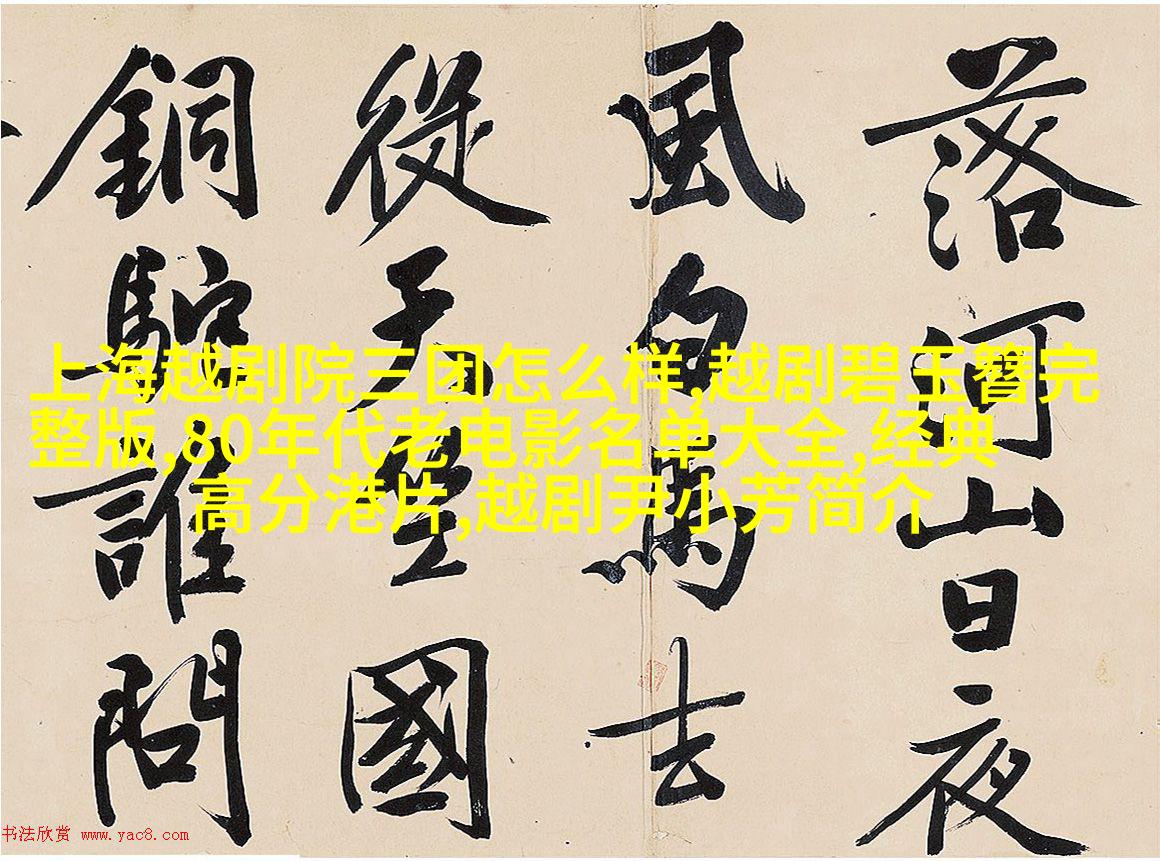 落河山日夜
風白馬去
從天國
銅駝誰問
上海越剧院三团怎么样,越剧碧玉簪完
整版,80年代老电影名单大全,经典
高分港片,越剧尹小芳简介
书法欣赏 www.yac8.com